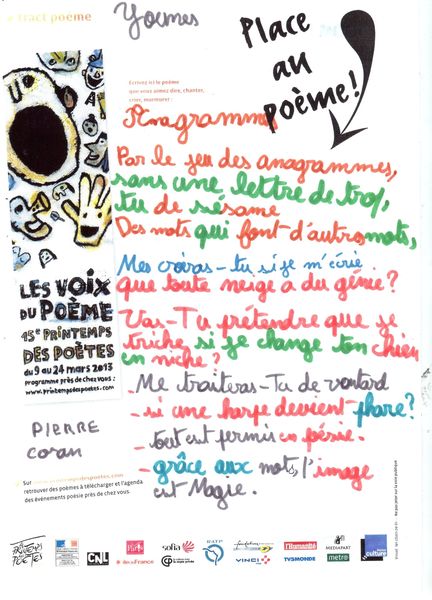 tract poème
Place
au
poème!
Ecrivez ici le poème
que vous aimez dire, chanter,
crier, murmurer :
Anagramme
Par le jeu des anagrammes,
sans une lettre de trop,
tu de sésame
Des mots qui font d'autromots,
Mes croiras-tu si je m'écrie
que toute neige a du génie?
Vas-Tu prétendre que je
triche, si je change ton chien
en niche?
- Me traiteras-Tu de ventard
- si une harpe devient phare?
- tout est permis en pésie.
- grâce aux mots, l'image
est Magie.
LES VOIX
DU POÈME
15e PRINTEMPS
DES POÈTES
du 9 au 24 mars 2013
programme près de chez vous :
www.printempsdespoetes.com
PIERRE
CORAN
Sur www.printempsdespoetes.com
retrouver des poèmes à télécharger et l'agenda
des événements poésie près de chez vous.
Ne pas jeter sur la voie publique
LE PRINTEMPS
DES POÈTES
CNL
île de France
sofia
RATP
VINCI
l'Humanité
TV5MONDE
MEDIAPART
metro
france
culture